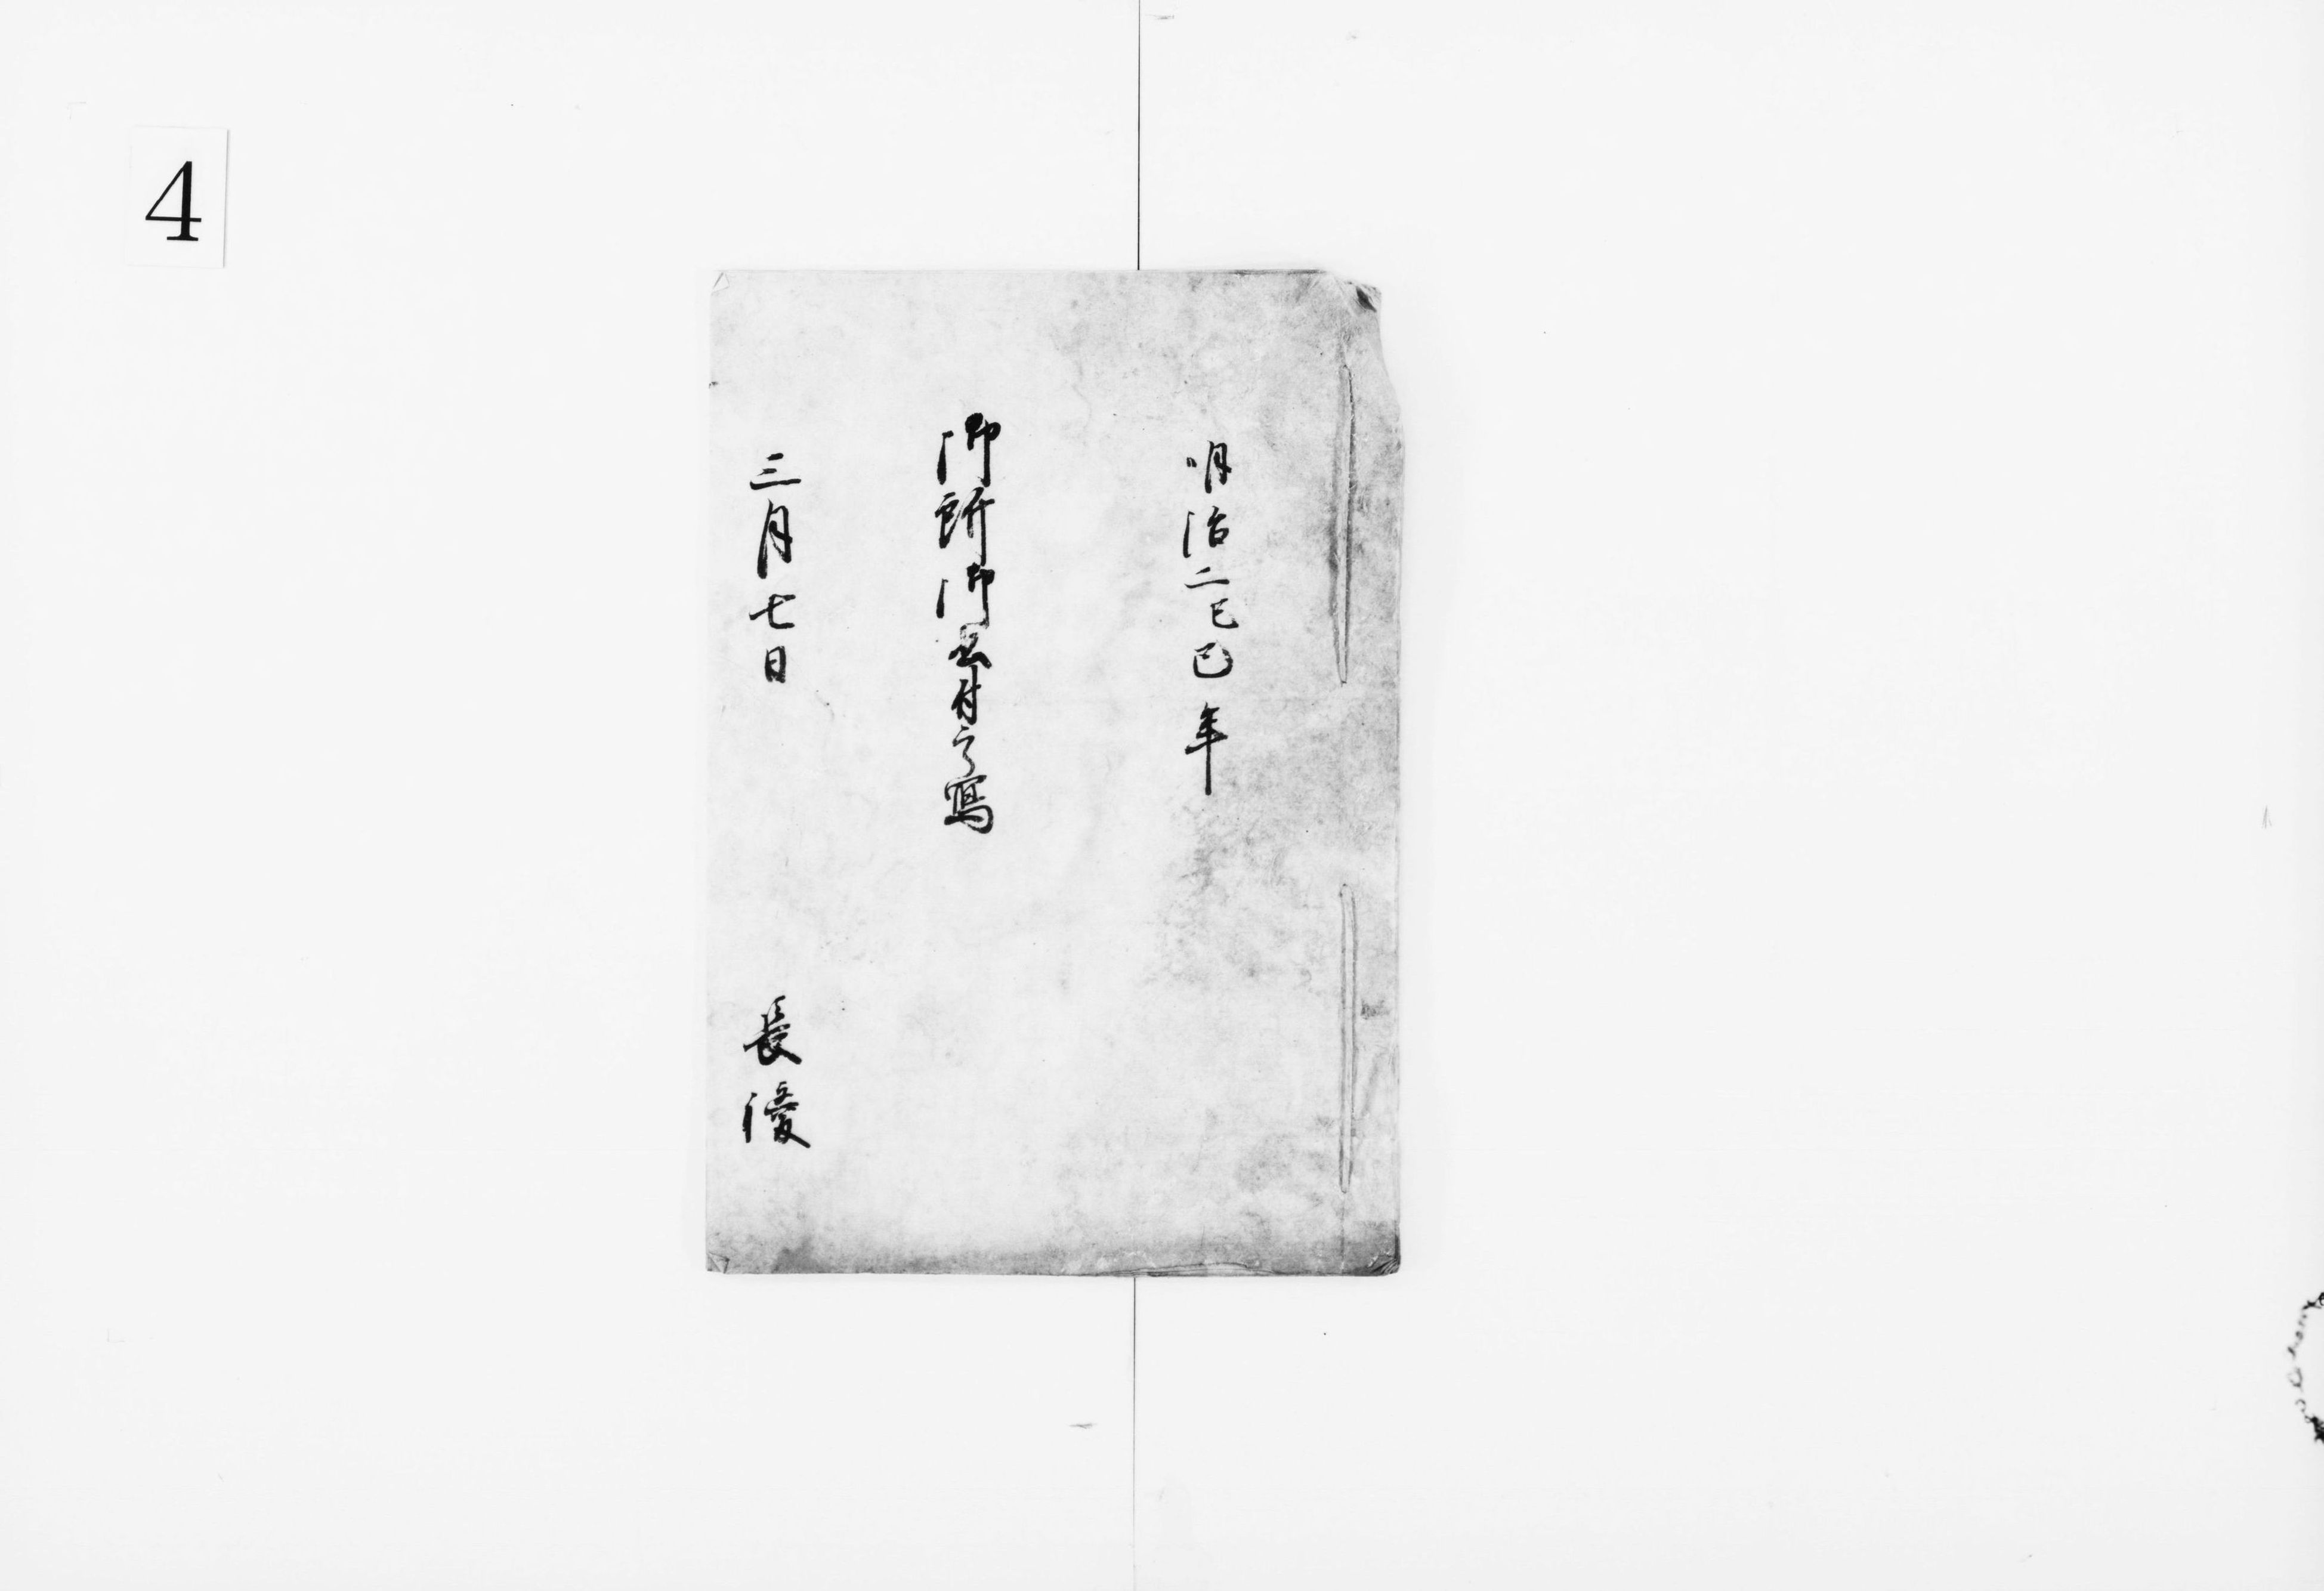 4
明治二己巳年
御所御書付之寫
三月七日
長優